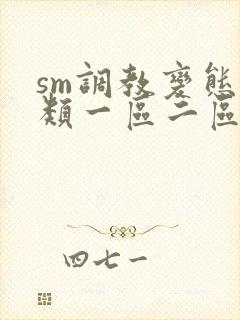 sm調教變態
類一區二區
四七一